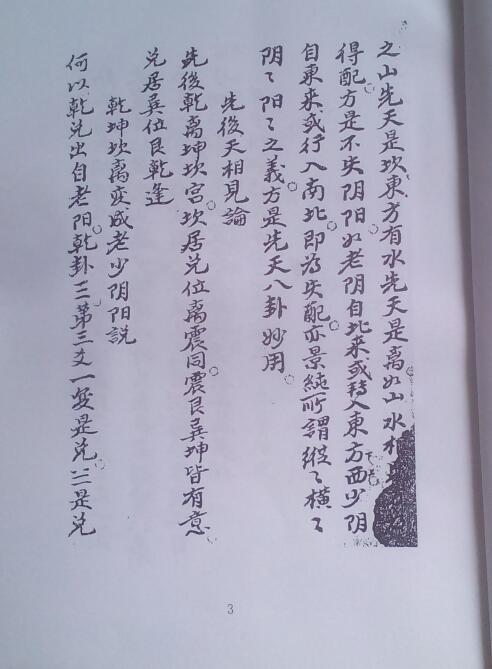 之山先天是坎東方有水先天是離如山水相
得配方是不失阴阳如老阴自北来或转入東方西少阴
自東来或行入南北即為失配亦景純所謂縱々橫々
阴々阳々之義方是先天八卦妙用
先後天相見論
先後乾離坤坎宮坎居兌位離震同震艮巽坤皆有意
兌居巽位艮乾逢
乾坤坎離变成老少阴阳説
何以乾兌出自老阳乾卦三第三爻一变是兌三是兌
3